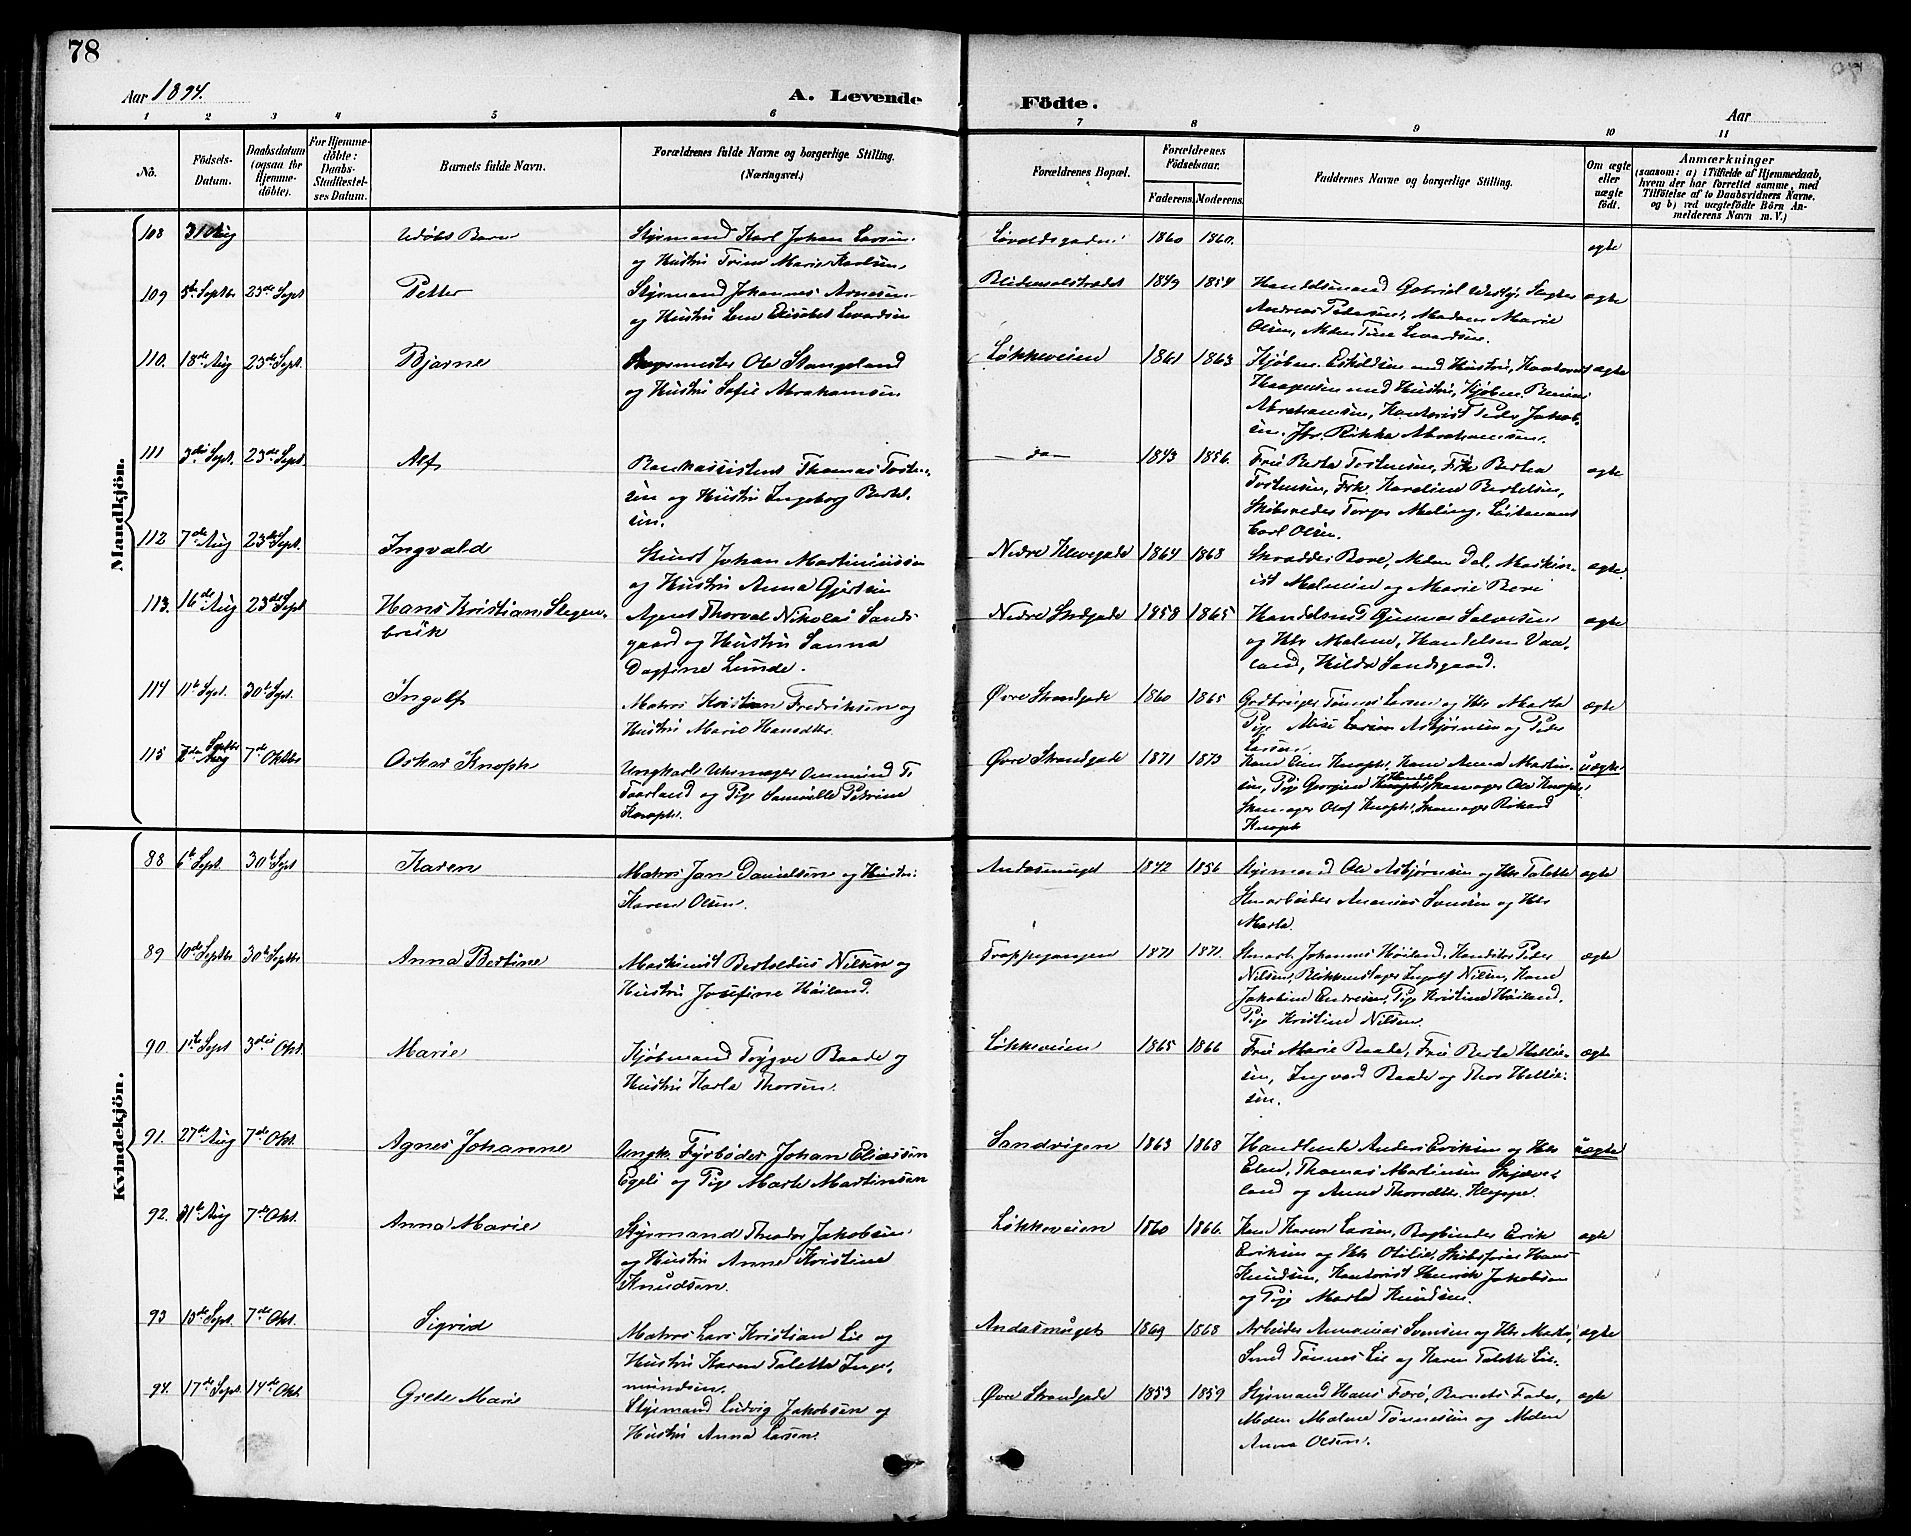 78
Aar 1894.
A. Levende Födte.
Aar
1 2 3 4 5 6 7 8 9 10 11
No.
Födsels-Datum.
Daabsdatum (ogsaa for Hjemme-döbte).
For Hjemme-döbte: Daabs-Stadfæstel-ses Datum.
Barnets fulde Navn.
Forældrenes fulde Navne og borgerlige Stilling. (Næringsvei.)
Forældrenes Bopæl.
Forældrenes Födselsaar.
Faderens. Moderens.
Faddernes Navne og borgerlige Stilling.
Om ægte eller uægte födt.
Anmærkninger
(saasom: a) i Tilfælde af Hjemmedaab,
hvem der har forrettet samme, med
Tilföielse af to Daabsvidners Navne.
og b) ved uægtefödte Börn An-
melderens Navn m. V.)
Mandkjön.
108 31 Aug Udøbt Barn Styrmand Karl Johan Larsen og Hustru Trine Marie Karlsen, Løvoldsgaden 1860 1860. ægte
109 5te Septbr 23de Sept Petter Styrmand Johannes Arnesen og Hustru Lene Elisabet Levardsen 1849 1854 Handelsmand Gabriel Westly,
Andreas Pedersen, Madam Marie
Olsen, Mdm Tine Levardsen. ægte
110. 18de Aug 23de Sept. Bjarne Ole Stangeland og Hustru Sofie Abrahamsen Løkkeveien 1861 1863 Kjøbm. Eskildsen med Hustru,
med Hustru, Kjøbm.
Abrahamsen, Kontorist Peder Jakob-
sen. Abrahamsen. ægte
111 3die Sept. 23de Sept Alf Bankassistent Thomas Tosten-
sen og Hustru Ingeborg Bertel-
sen. — do — 1843 1856. Frue Berta Tostensen, Frk Berta
Tostensen, Frk. Karoline Bertelsen,
Skibsreder Torger Meling, Løitenant
Carl Olsen. ægte
112 7de Aug 23de Sept. Ingvald Johan Martiniussen
og Hustru Anna Gjertsen Nedre Klevegade 1864 1868 Skrædder Bore, Mdm Dal, Maskin-
ist og Marie Bore ægte
113. 16de Aug 23de Sept Hans Kristian Stegen-
briik Agent Thorval Nikolai Sands-
gaard og Hustru Sanna
Dagfine Lunde. Nedre Strdgade 1858 1865 Handelsmd Gunnar Salvesen
og Hstr Malene, Handelsm Vaa-
land, Hilda Sandsgaard. ægte
114 11te Sept. 30te Sept. Ingolf Matros Kristian Fredriksen og
Hustru Marie Hansdtr. Øvre Strandgade 1860 1865 Grdbruger Tønnes Larsen og Hstr Marta
Pige Larsen Asbjørnsen og Peder
Larsen. ægte
115 Septbr Aug 7de Oktbr Oskar Knoph Ungkarl Uhrmager T.
Taarland og Pige Petrine
Knoph. Øvre Strandgade 1871 1873 Kone Knoph, Kone Anna Martin-
sen, Pige Skomager Ole Knoph,
Skomager Olaf Knoph, Skomager Rikard
Knoph uægte
Kvindekjön.
88 6te Sept. 30te Sept Karen Matros Jan Danielsen og Hustru
Karen Olsen. Andasmuget 1842 1856 Styrmand Ole Asbjørnsen og Hstr Talette
Stenarbeider Ananias Svendsen og Hstr
Marta. ægte
89 10de Septbr 30te Septbr Anna Bertine Maskinist Bertoldus Nilsen og
Hustru Josefine Høiland. Trappegangen 1871 1871. Johannes Høiland, Peder
Nilsen, Blikkenslager Ingolf Nilsen, Kone
Jakobine Endresen, Pige Kristine Høiland.
Pige Kristine Nilsen. ægte
90. 1ste Sept 3die Okt. Marie Kjøbmand Trygve Baade og
Hustru Karla Thorsen. Løkkeveien 1865 1866 Frue Marie Baade, Frue Berta Hellie-
sen, Ingvard Baade og Thor Hellie-
sen. ægte
91. 27de Aug 7de Okt. Agnes Johanne Ungk. Fyrbøder Johan Eliassen
Egeli og Pige Marte Martinsen Sandvigen 1863 1868 Handlende Anders Eriksen og Hstr
Elen, Thomas Martinsen Skjæve-
land og Anne Thorsdtr. Kleppe. uægte
92. 31te Aug 7de Okt. Anna Marie Styrmand Theodor Jakobsen
og Hustru Anne Kristine
Knudsen. Løkkeveien 1860 1866. Kone Karen Larsen, Bogbinder Erik
Eriksen og Hstr Otilie, Skibsfører Hans
Knudsen, Kontorist Henrik Jakobsen
og Pige Marta Knudsen. ægte
93 13de Sept. 7de Okt. Sigrid Matros Lars Kristian Lie og
Hustru Karen Taletta Inge-
mundsen. Andasmuget 1869 1868 Arbeider Annanias Svensen og Hstr Marta,
Smed Tønnes Lie og Karen Talette Lie. ægte
94. 17de Sept. 14de Okt. Grete Marie Styrmand Ludvig Jakobsen og
Hustru Anna Larsen. Øvre Strandgade 1853 1859 Styrmand Hans Færø, Barnets Fader,
Mdm Malene Tønnesen og Mdm
Anna Olsen. ægte